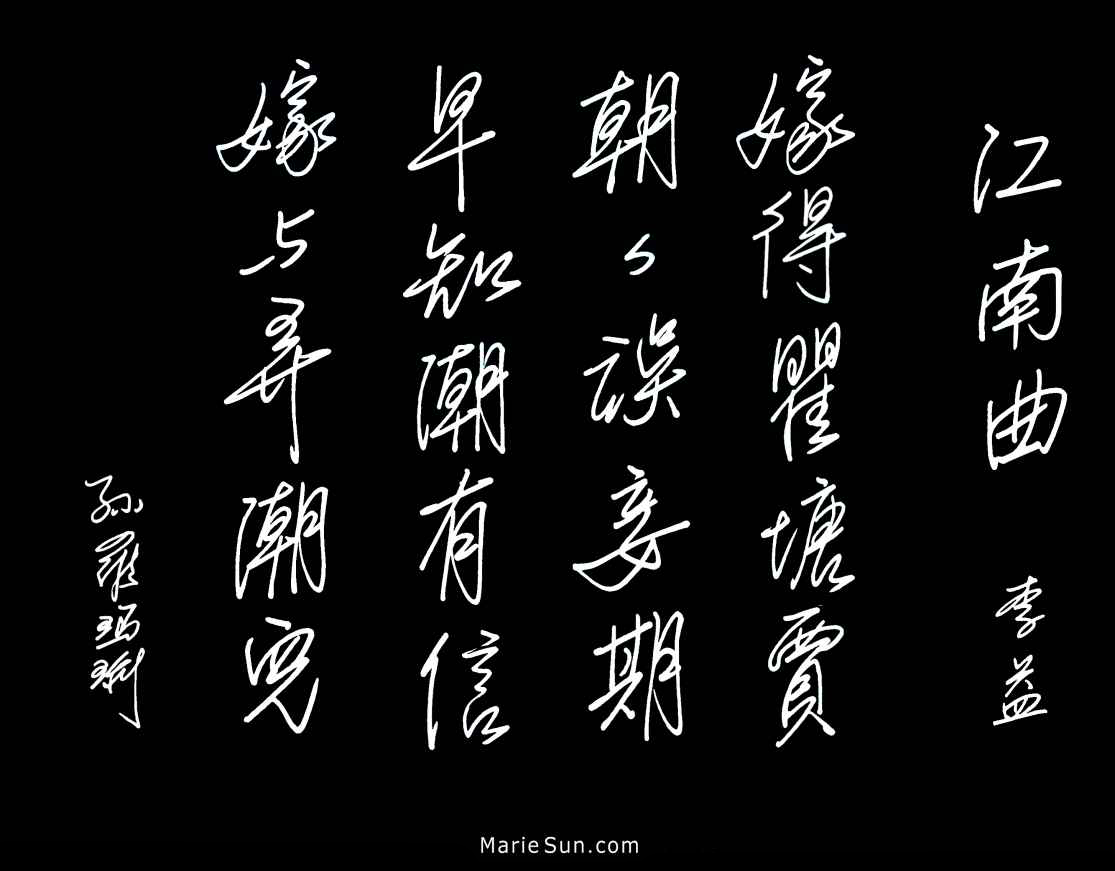 江南曲 李益
嫁得瞿塘賈
朝々誤妾期
早知潮有信
嫁与弄潮兒
孫羅瑪琍
MarieSun.com